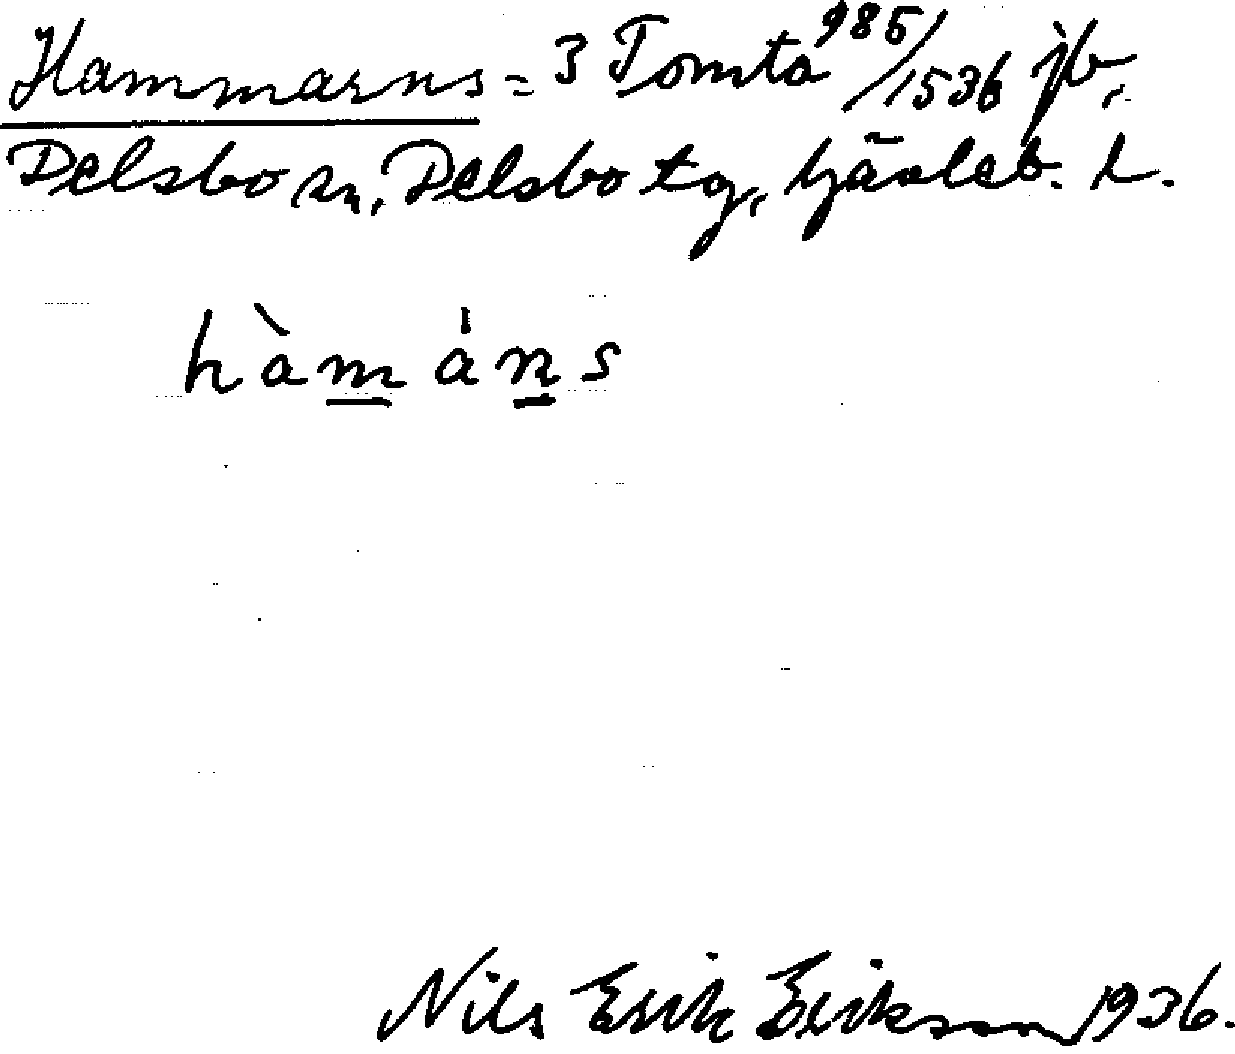 Hammarns = 3 Tomta 985/1536 jb,
Delsbo sn, Delsbo tg, Gävleb. l.
hàmáns
Nils Erik Eriksson 1936.